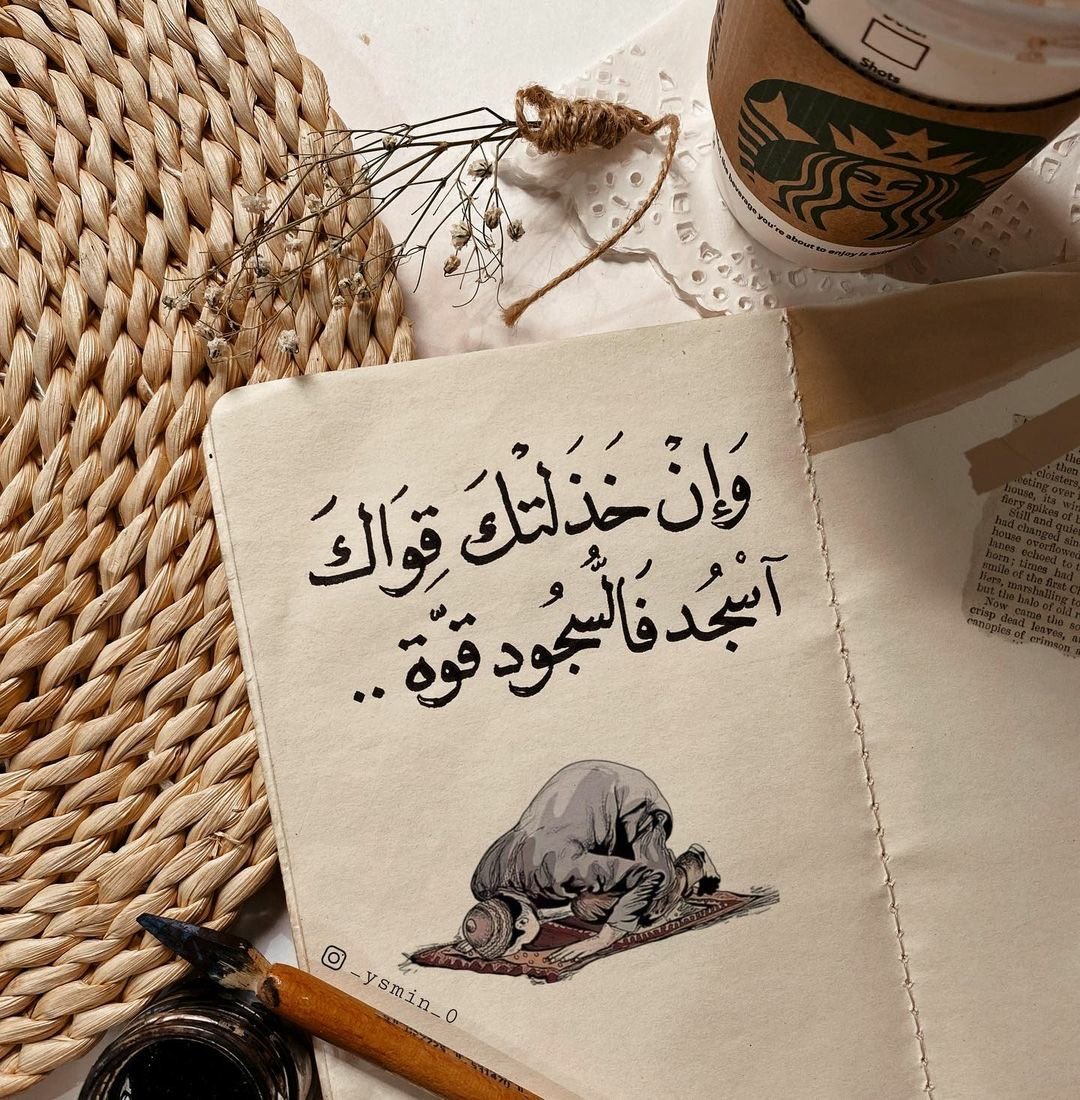 Shots
beverage you're about to enjoy is
وَإِنْ خَذَلَتْكَ قِوَاكَ
آسْجُد فَالسُّجُود قوّة ..
the
cloisters,
over
house, its
fiery spikes of
Still and
had changed
house overflowed
lanes echoed to
horn; times had
smile of the first
marshalling to
but the halo of old
Now came the
crisp dead leaves,
canopies of crimson
_ysmin_0